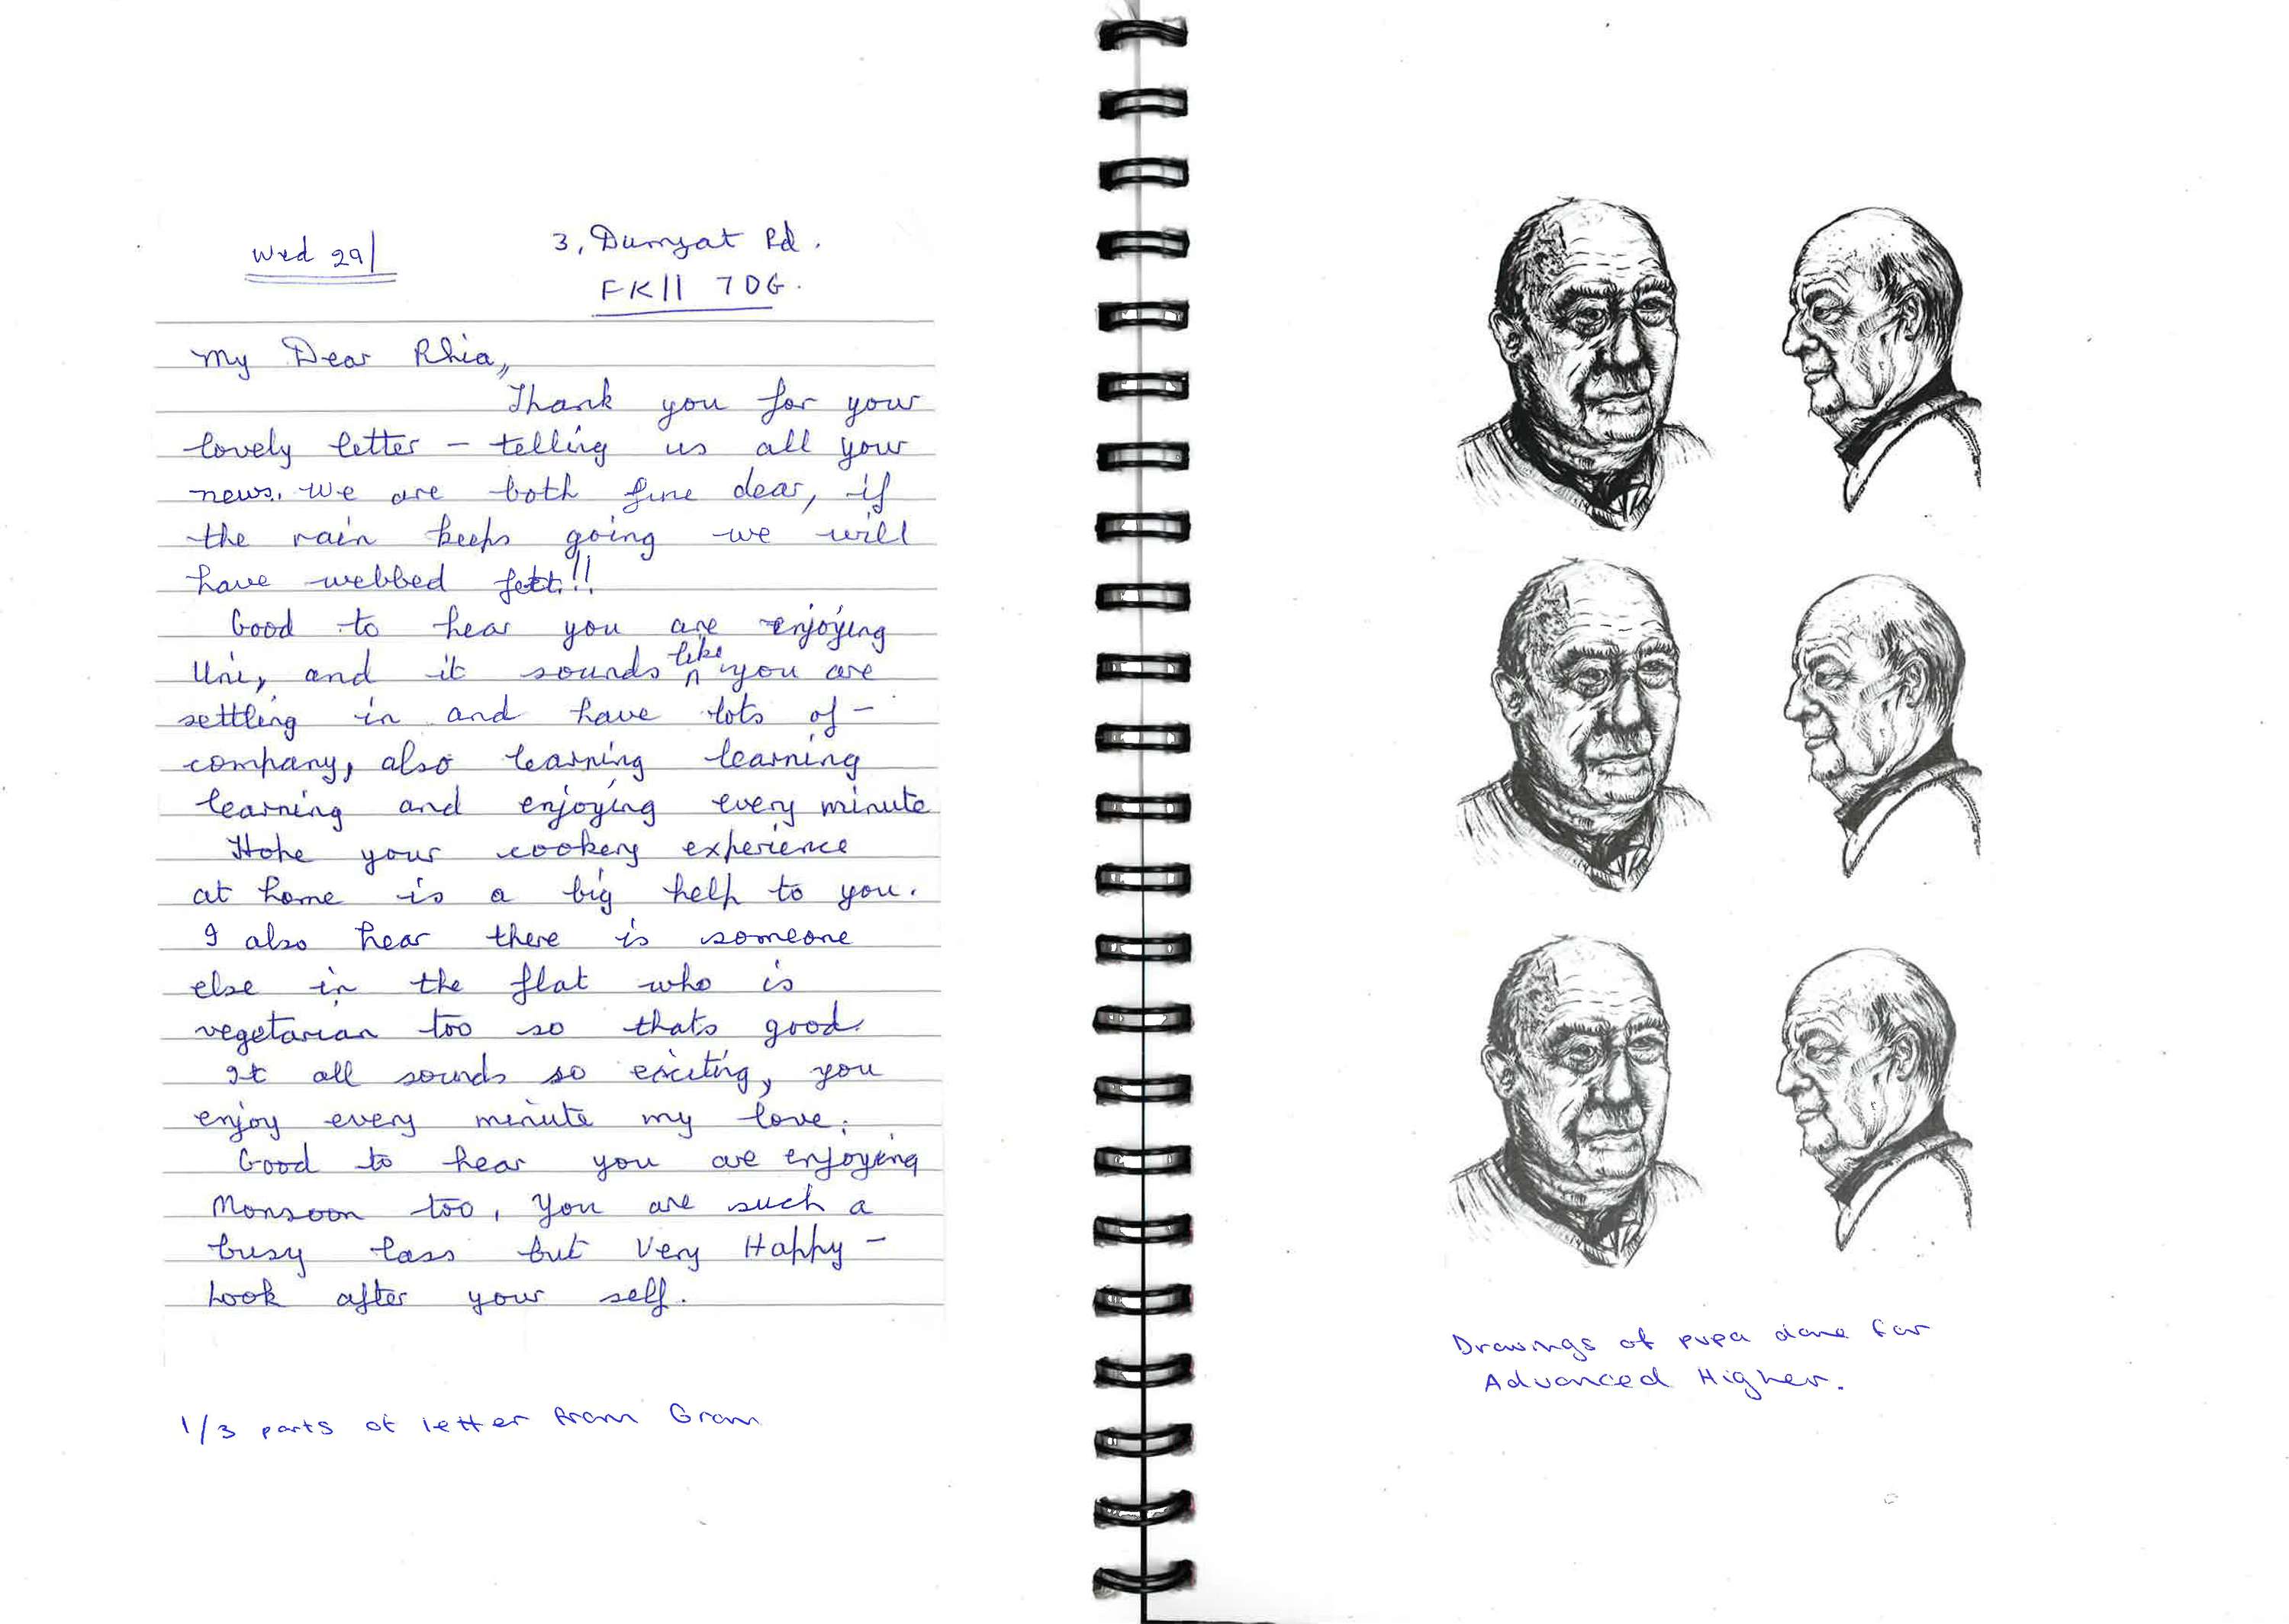 Wed 29/
3, Dumyat Rd.
FK11 7DG.
My Dear Rhia,,
Thank you for your
lovely letter – telling us all your
news. We are both fine dear, if
the rain keeps going we will
have webbed feet!!
Good to hear you are enjoying
Uni, and it sounds like you are
settling in and have lots of –
company, also learning learning
learning and enjoying every minute
Hope your cookery experience
at home is a big help to you.
I also hear there is someone
else in the flat who is
vegetarian too so thats good.
It all sounds so exciting, you
enjoy every minute my love.
Good to hear you are enjoying
Monsoon too, You are such a
busy lass but Very Happy –
Look after your self.
1/3 parts of letter from Gram
Drawings of pupa done for
Advanced Higher.